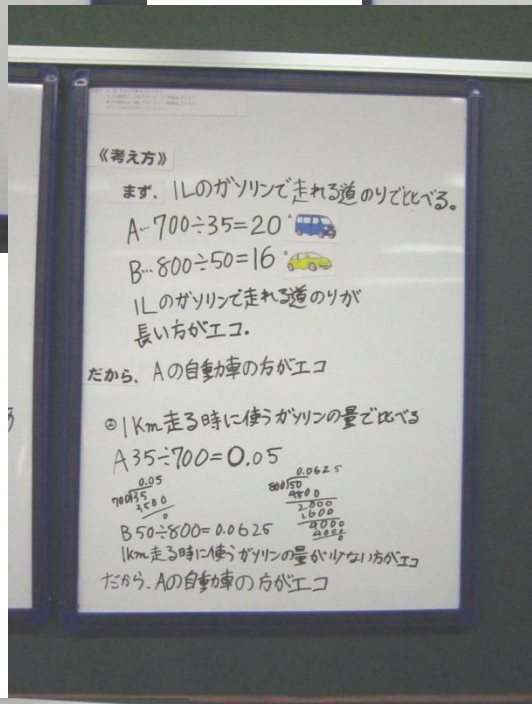 《考え方》
まず、1Lのガソリンで走れる道のりで比べる。
A…700÷35=20
B…800÷50=16
1Lのガソリンで走れる道のりが
長い方がエコ.
だから、Aの自動車の方がエコ
②1Km走る時に使うガソリンの量で比べる
A35÷700=0.05
0.05
700)35
3500
0
0.0625
800)50
4800
2000
1600
4000
4000
0
B50÷800=0.0625
1km走る時に使うガソリンの量が少ない方がエコ
だから、Aの自動車の方がエコ